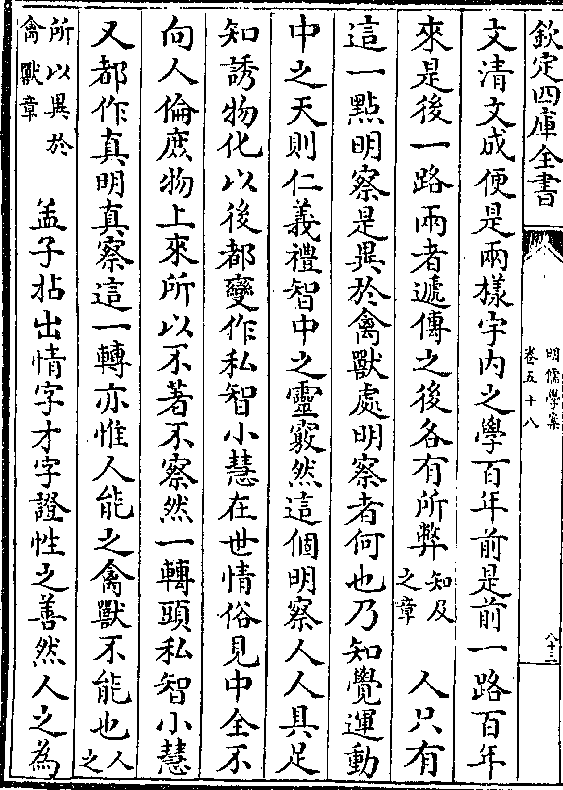 欽定四庫全書
明儒學案
卷五十八
八十三
文清文成便是兩様宇内之學百年前是前一路百年
來是後一路兩者遞傳之後各有所弊知及之章　人只有
這一點明察是異於禽獸處明察者何也乃知覺運動
中之天則仁義禮智中之靈竅然這個明察人人具足
知誘物化以後都變作私智小慧在世情俗見中全不
向人倫庶物上來所以不著不察然一轉頭私智小慧
又都作真明真察這一轉亦惟人能之禽獸不能也人之
所以異於禽獸章　孟子拈出情字才字證性之善然人之為